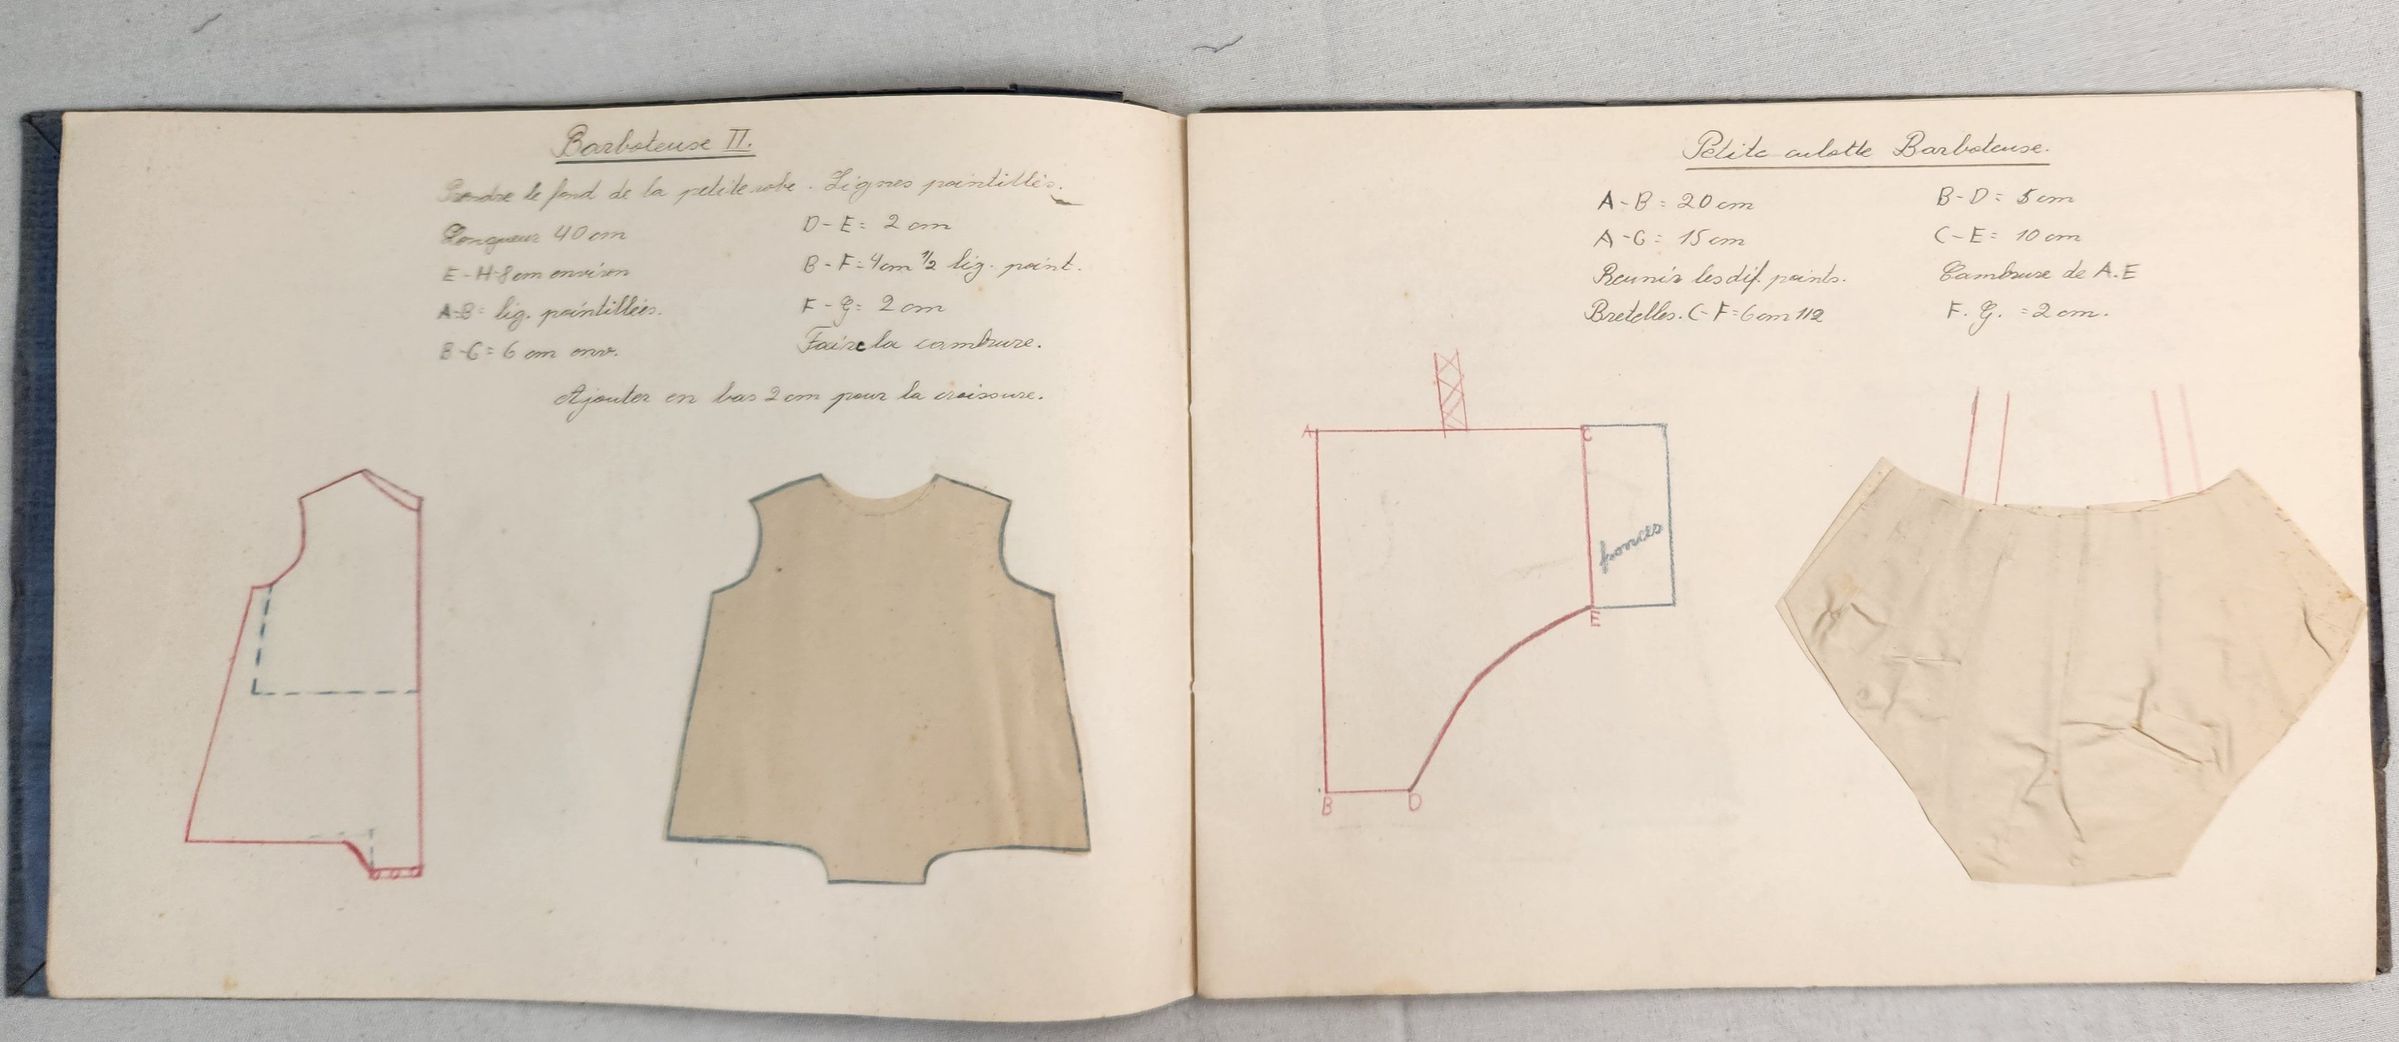 Barboteuse II.
Prendre le fond de la petite robe. Lignes pointillés.
Longueur 40 cm
E-H-8 cm environ
A-B= lig. pointillées.
B-C= 6 cm env.
D-E= 2 cm
B-F= 4cm 1/2 lig. point.
F-G= 2 cm
Faire la cambrure.
Ajouter en bas 2 cm pour la croissure.
Petite culotte Barboteuse.
A-B= 20 cm
A-C= 15 cm
Reunir les dif. points.
Bretelles. C-F=6 cm 1/2
B-D= 5 cm
C-E= 10 cm
Cambrure de A.E
F. G. = 2 cm.
A
C
fronces
E
B
D